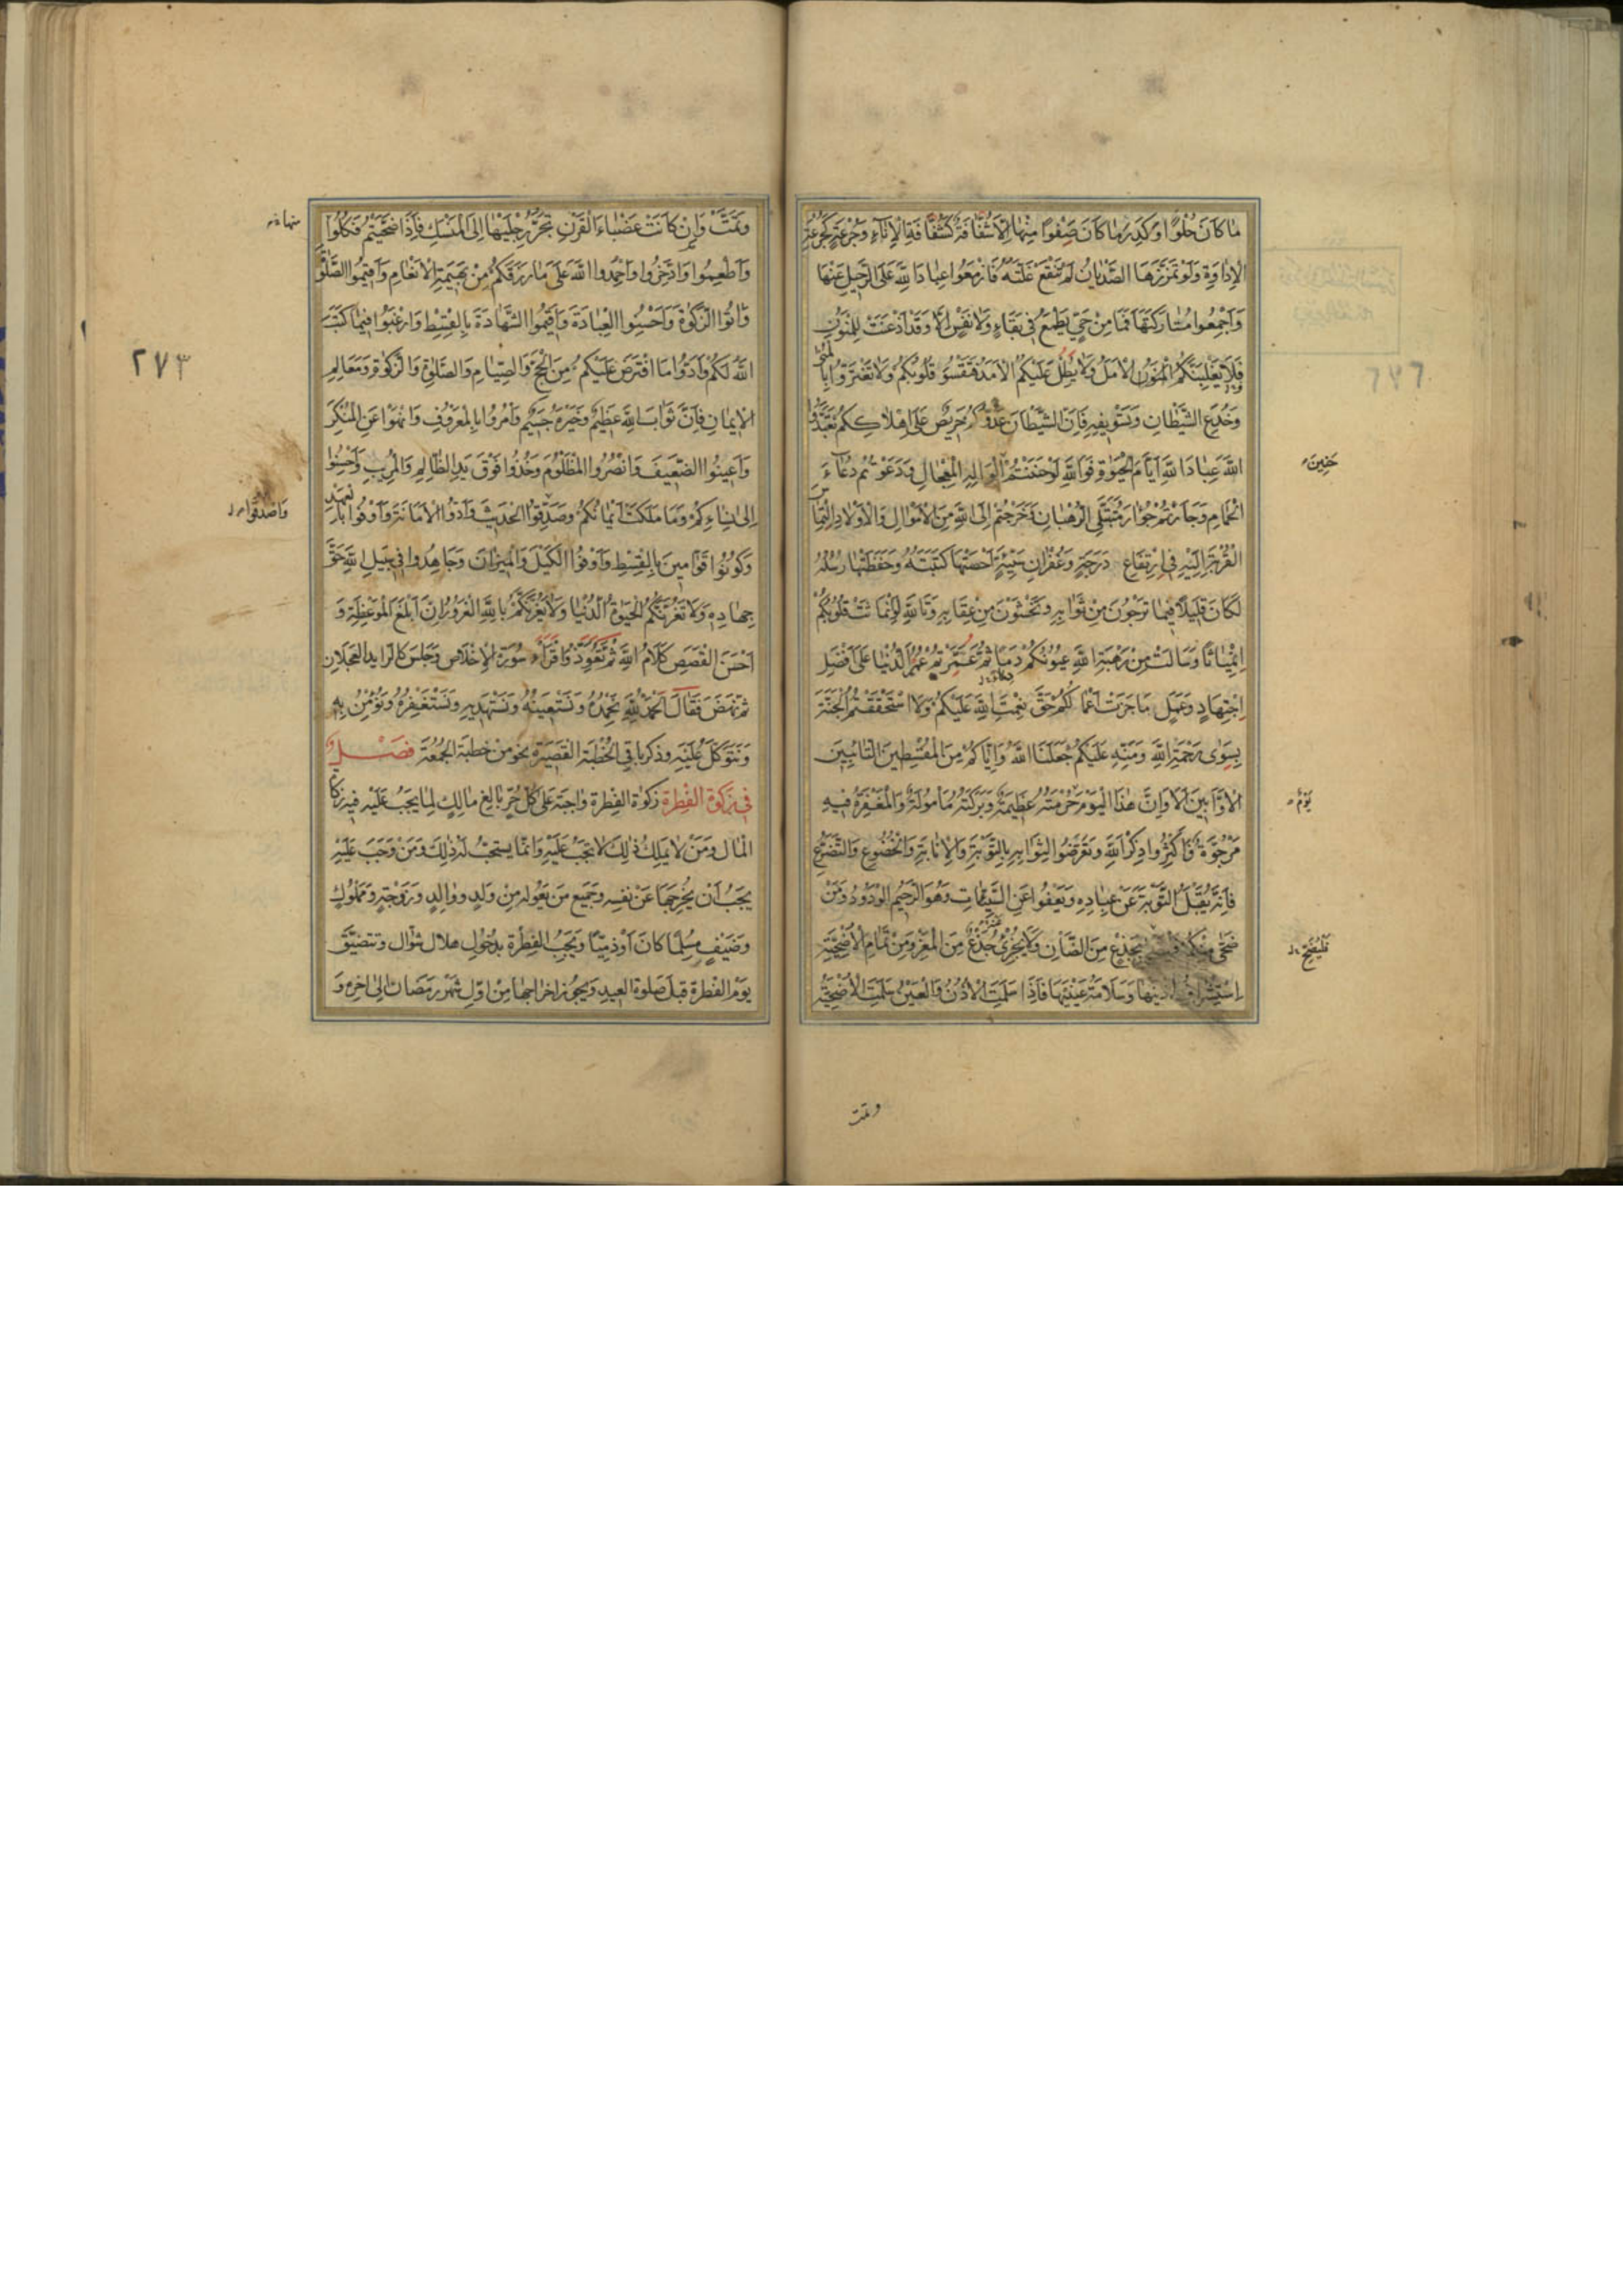 مَا كَانَ حُلْوًا وَكَدِرَ مَا كَانَ صَفْوًا مِنْهَا اِلَّا شُفَافَةٌ كَشُفَافَةِ الْاِنَاءِ وَجُرْعَةٌ كَجُرْعَةِ
الْاِدَاوَةِ وَلَوْ تَمَزَّزَهَا الصَّدْيَانُ لَمْ تَنْقَعْ غُلَّتَهُ فَازْمِعُوا عِبَادَ اللّٰهِ عَلَى الرَّحِيلِ عَنْهَا
وَاَجْمِعُوا مُتَارَكَتَهَا فَمَا مِنْ حَيٍّ يَطْمَعُ فِي بَقَاءٍ وَلَا نَفْسٍ اِلَّا وَقَدْ اَذْعَنَتْ لِلْمَنُونِ
فَلَا يَغْلِبَنَّكُمُ الْاَمَلُ وَلَا يَطُلْ عَلَيْكُمُ الْاَمَدُ فَتَقْسُوَ قُلُوبُكُمْ وَلَا تَغْتَرُّوا بِالْمُنَى
وَخُدَعِ الشَّيْطَانِ وَتَسْوِيفِهِ فَاِنَّ الشَّيْطَانَ عَدُوُّكُمْ حَرِيصٌ عَلَى اِهْلَاكِكُمْ تَعَبَّدُوا
اللّٰهَ عِبَادَ اللّٰهِ اَيَّامَ الْحَيٰوةِ فَوَاللّٰهِ لَوْ حَنَنْتُمْ الْوَالِهِ الْمِعْجَالِ وَدَعَوْتُمْ دُعَاءَ
حَنِينَ
الْحَمَامِ وَجَاَرْتُمْ جُؤَارَ مُتَبَتِّلِي الرُّهْبَانِ وَخَرَجْتُمْ اِلَى اللّٰهِ مِنَ الْاَمْوَالِ وَالْاَوْلَادِ الْتِمَاسَ
الْقُرْبَةِ اِلَيْهِ فِي ارْتِفَاعِ دَرَجَةٍ وَغُفْرَانِ سَيِّئَةٍ اَحْصَتْهَا كَتَبَتُهُ وَحَفِظَتْهَا رُسُلُهُ
لَكَانَ قَلِيلًا فِيمَا تَرْجُونَ مِنْ ثَوَابِهِ وَتَخْشَوْنَ مِنْ عِقَابِهِ وَتَاللّٰهِ لَوِ انْمَاثَتْ قُلُوبُكُمُ
انْمِيَاثًا وَسَالَتْ مِنْ رَهْبَةِ اللّٰهِ عُيُونُكُمْ دَمًا ثُمَّ عُمِّرْتُمْ عُمُرَ الدُّنْيَا عَلَى اَفْضَلِ
اجْتِهَادٍ وَعَمَلٍ مَا جَزَتْ اَعْمَالُكُمْ حَقَّ نِعْمَةِ اللّٰهِ عَلَيْكُمْ وَلَا اسْتَحْقَقْتُمُ الْجَنَّةَ
بِسِوَى رَحْمَةِ اللّٰهِ وَمَنِّهِ عَلَيْكُمْ جَعَلَنَا اللّٰهُ وَاِيَّاكُمْ مِنَ الْمُقْسِطِينَ التَّائِبِينَ
الْاَوَّابِينَ اَلَا وَاِنَّ هٰذَا الْيَوْمَ حُرْمَتُهُ عَظِيمَةٌ وَبَرَكَتُهُ مَأْمُولَةٌ وَالْمَغْفِرَةُ فِيهِ
يَوْمٌ
مَرْجُوَّةٌ فَاَكْثِرُوا ذِكْرَ اللّٰهِ وَتَعَرَّضُوا لِثَوَابِهِ بِالتَّوْبَةِ وَالْاِنَابَةِ وَالْخُضُوعِ وَالتَّضَرُّعِ
فَاِنَّهُ يَقْبَلُ التَّوْبَةَ عَنْ عِبَادِهِ وَيَعْفُوا عَنِ السَّيِّئَاتِ وَهُوَ الرَّحِيمُ الْوَدُودُ وَمَنْ
ضَحَّى مِنْكُمْ بِجَذَعٍ مِنَ الضَّاْنِ وَلَا يُجْزِئُ جَذَعٌ مِنَ الْمَعْزِ وَمِنْ تَمَامِ الْاُضْحِيَّةِ
فَلْيُضَحِّ
اِسْتِشْرَافُ اُذُنِهَا وَسَلَامَةُ عَيْنِهَا فَاِذَا سَلِمَتِ الْاُذُنُ وَالْعَيْنُ سَلِمَتِ الْاُضْحِيَّةُ
وتمت
وَتَمَّتْ وَاِنْ كَانَتْ عَضْبَاءَ الْقَرْنِ تَجُرُّ رِجْلَيْهَا اِلَى الْمَنْسَكِ فَاِذَا ضَحَّيْتُمْ فَكُلُوا
منها
وَاَطْعِمُوا وَادَّخِرُوا وَاحْمَدُوا اللّٰهَ عَلَى مَا رَزَقَكُمْ مِنْ بَهِيمَةِ الْاَنْعَامِ وَاَقِيمُوا الصَّلٰوةَ
وَاٰتُوا الزَّكٰوةَ وَاَحْسِنُوا الْعِبَادَةَ وَاَقِيمُوا الشَّهَادَةَ بِالْقِسْطِ وَارْغَبُوا فِيمَا كَتَبَ
اللّٰهُ لَكُمْ وَاَدُّوا مَا افْتَرَضَ عَلَيْكُمْ مِنَ الْحَجِّ وَالصِّيَامِ وَالصَّلٰوةِ وَالزَّكٰوةِ وَمَعَالِمِ
٢٧٣
الْاِيمَانِ فَاِنَّ ثَوَابَ اللّٰهِ عَظِيمٌ وَخَيْرَهُ جَسِيمٌ وَاْمُرُوا بِالْمَعْرُوفِ وَانْهَوْا عَنِ الْمُنْكَرِ
وَاَعِينُوا الضَّعِيفَ وَانْصُرُوا الْمَظْلُومَ وَخُذُوا فَوْقَ يَدِ الظَّالِمِ وَالْمُرِيبِ وَاَحْسِنُوا
اِلَى نِسَاءِكُمْ وَمَا مَلَكَتْ اَيْمَانُكُمْ وَصَدِّقُوا الْحَدِيثَ وَاَدُّوا الْاَمَانَةَ وَاَوْفُوا بِالْعَهْدِ
وَاصْدُقُوا
وَكُونُوا قَوَّامِينَ بِالْقِسْطِ وَاَوْفُوا الْكَيْلَ وَالْمِيزَانَ وَجَاهِدُوا فِي سَبِيلِ اللّٰهِ حَقَّ
جِهَادِهِ وَلَا تَغُرَّنَّكُمُ الْحَيٰوةُ الدُّنْيَا وَلَا يَغُرَّنَّكُمْ بِاللّٰهِ الْغَرُورُ اِنَّ اَبْلَغَ الْمَوْعِظَةِ وَ
اَحْسَنَ الْقَصَصِ كَلَامُ اللّٰهِ ثُمَّ تَعَوَّذَ وَقَرَأَ سُورَةَ الْاِخْلَاصِ وَجَلَسَ كَالرَّايِدِ الْعَجْلَانِ
ثُمَّ نَهَضَ فَقَالَ الْحَمْدُ لِلّٰهِ نَحْمَدُهُ وَنَسْتَعِينُهُ وَنَسْتَهْدِيهِ وَنَسْتَغْفِرُهُ وَنُؤْمِنُ بِهِ
وَنَتَوَكَّلُ عَلَيْهِ وذكر باقي الخُطْبَة القَصِيرَة نحو من خطبة الجُمُعَة فصل
في زكوة الفطرة زكوة الفطرة واجبة على كل حُرٍّ بالغ مالك لما يجب عليه فيه زكاة
المال ومن لا يملك ذلك لا يجب عليه وانما يستحب له ذلك ومن وجب عليه
يجب ان يخرجها عن نفسه وجميع من يعوله من ولد ووالد وزوجة ومملوك
وضيف مسلما كان او ذميا وتجب الفطرة بدخول هلال شوال وتتضيق
يوم الفطرة قبل صلوة العيد ويجوز اخراجها من اول شهر رمضان الى اخره و